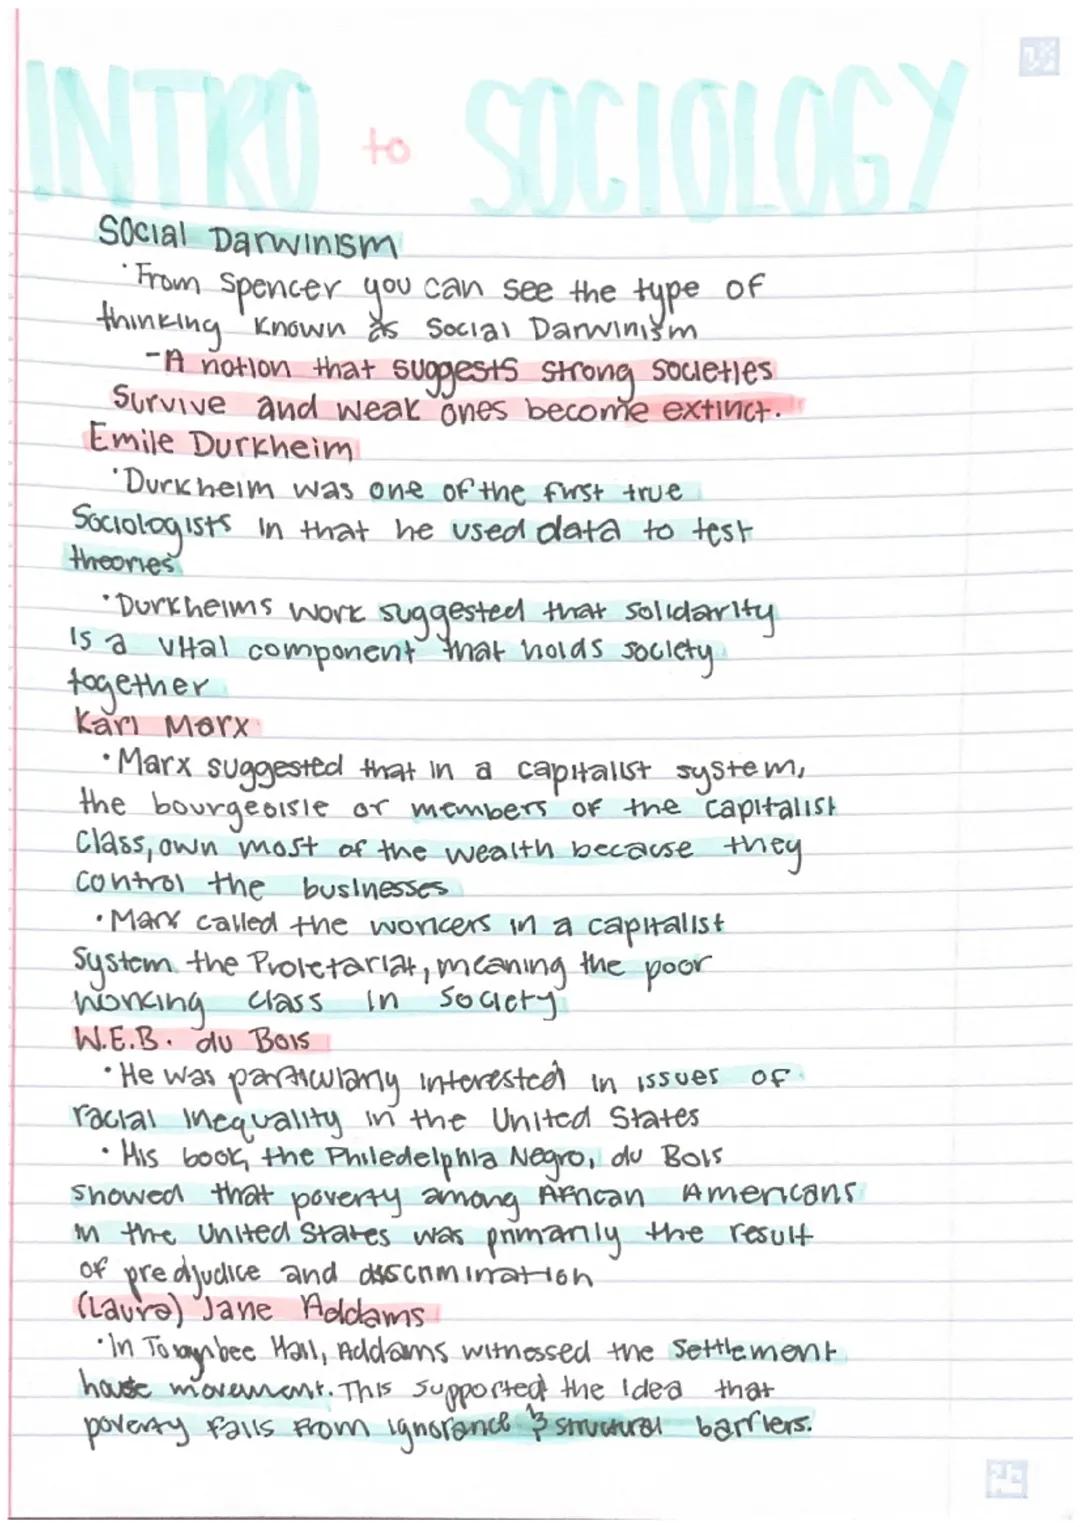 INTRO to SOCIOLOGY
Social Darwinism
· From Spencer you can see the type of
thinking known as Social Darwinism
- A notion that suggests strong societies
Survive and weak ones become extinct.
Emile Durkheim
· Durkheim was one of the first true
Sociologists in that he used data to test
theories
· Durkheims work suggested that solidarity
is a vital component that holds society
together
Karl Marx
· Marx suggested that in a capitalist system,
the bourgeoisie or members of the capitalist
Class, own most of the wealth because they
control the businesses
· Marx called the workers in a capitalist
System the Proletariat, meaning the poor
working class in society
W.E.B. du Bois
· He was particularly interested in issues of
racial inequality in the United States
· His book, the Philedelphia Negro, du Bois
showed that poverty among African Americans
in the United States was primarily the result
of predjudice and discrimination
(Laura) Jane Addams
· In Toynbee Hall, Addams witnessed the Settlement
house movement. This supported the idea that
poverty falls from ignorance & structural barriers.